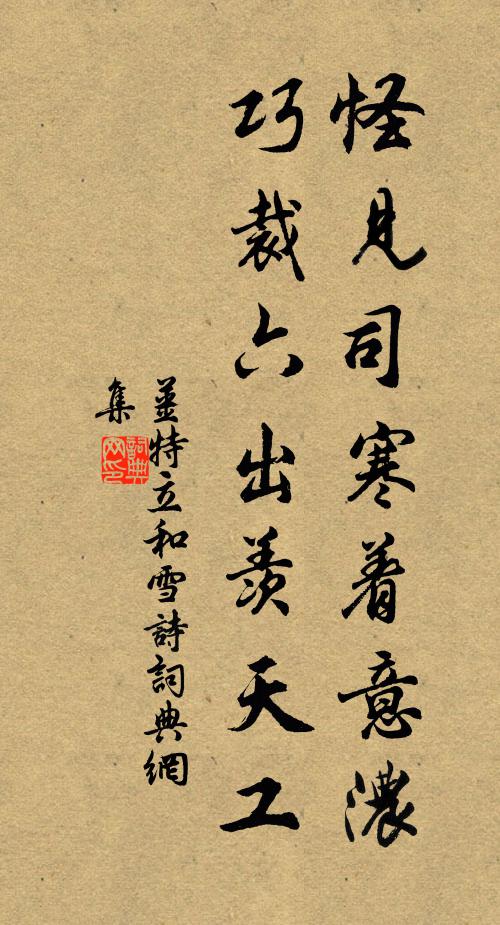 怪見司寒着意濃
巧裁六出羨天工
姜特立和雪詩詞典網
集
詞典
网印